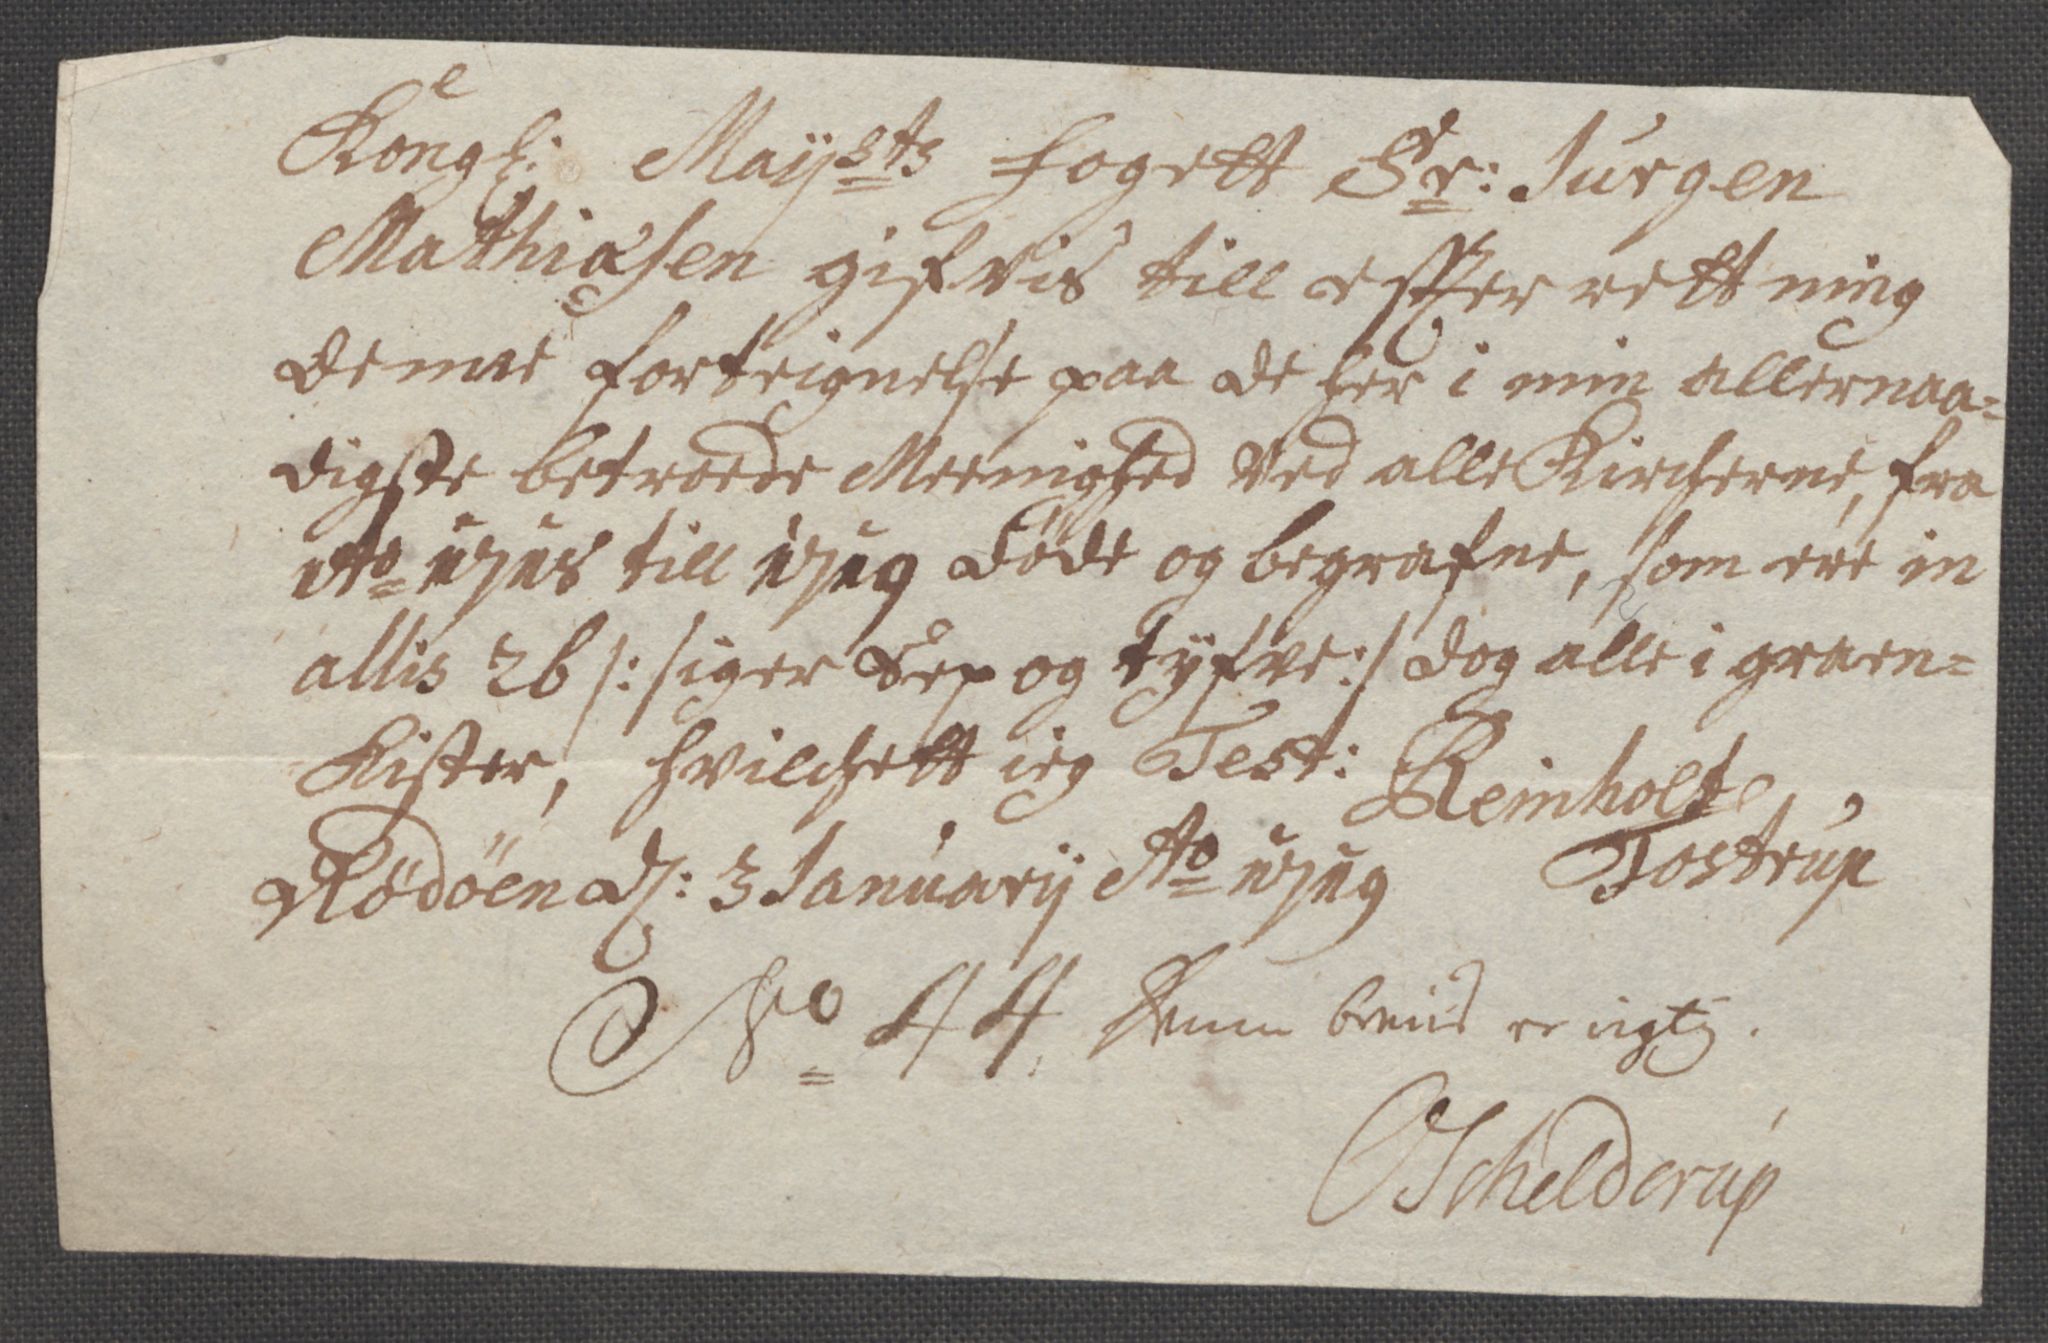 Kongl: Mayꝫts Fogett Sr: Jurgen
Mathiasen gifvis till effter rettning
denne forteignelse paa de her i min allernaa-
digste betroede Meenighed Ved alle Kircherne, fra
Ao 1718 till 1719 döde og begrafne, som ere in
allis 26 /: siger Sex og tyfve :/ dog alle i graen-
Kister, hvilchett ieg Test: Reinholt
Rödöen d: 3 Januarij Ao 1719 Tostrup
No 44. Denne beviis er rigtig.
OSchelderup